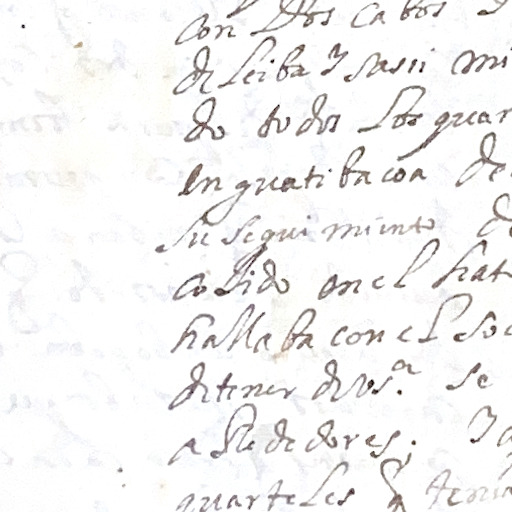 con Dhos cabos D
de Leiba Y sasii mi
do todos Los quar
en guatibacoa de
su seguimiento de
cojido en el hat
hallaba con el soc
de tener de Vs.ª se
a Rededores; Y a
quarteles q tenia